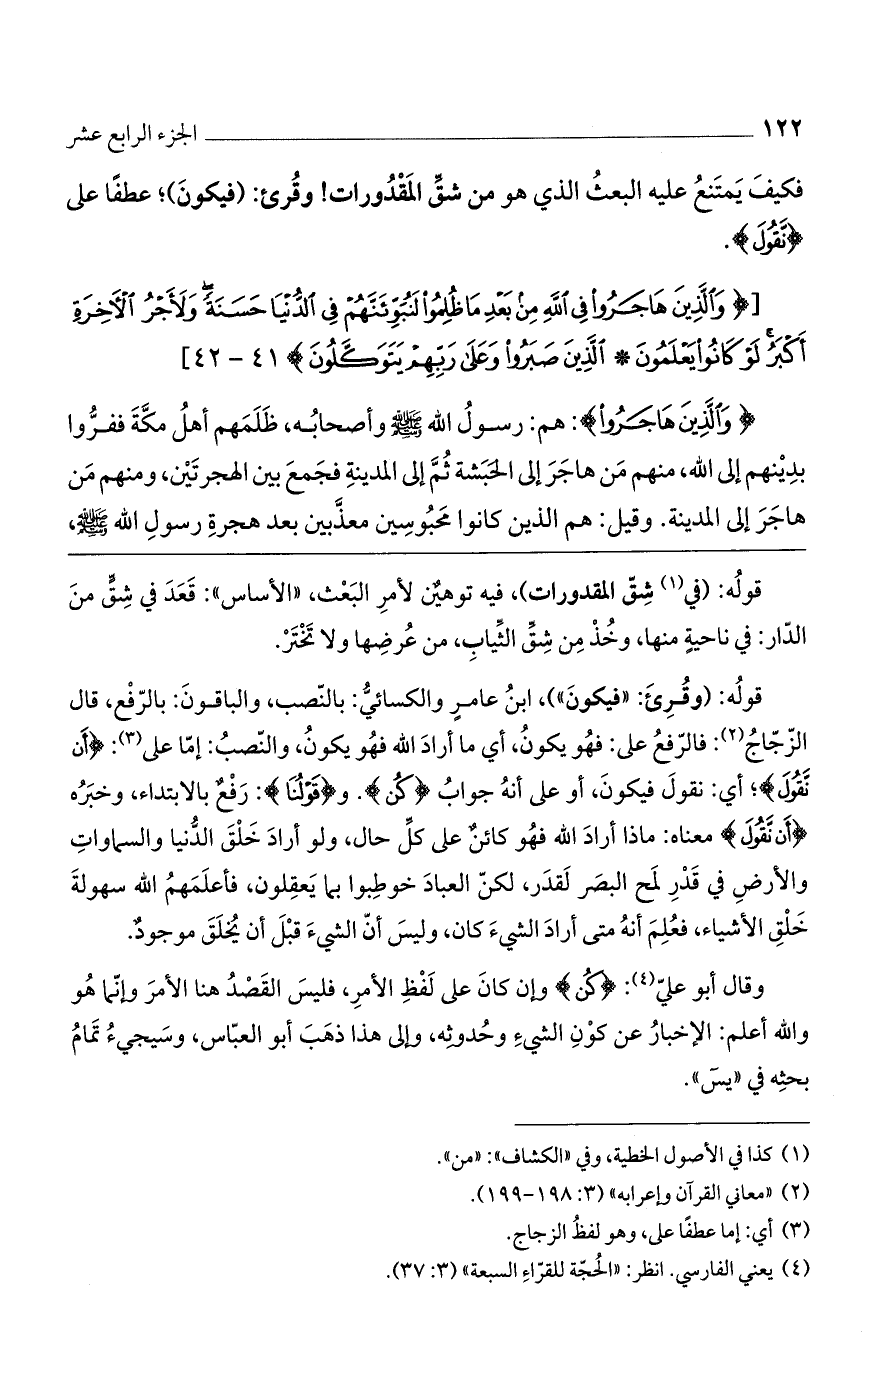 ١٢٢ ــــــــــــــــــــ الجزء الرابع عشر
فكيفَ يَمتَنعُ عليه البعثُ الذي هو من شقِّ المَقْدُورات! وقُرئ: (فيكونَ)؛ عطفًا على
﴿نَّقُولَ﴾.
[﴿ وَٱلَّذِينَ هَاجَرُواْ فِى ٱللَّهِ مِنۢ بَعْدِ مَا ظُلِمُواْ لَنُبَوِّئَنَّهُمْ فِى ٱلدُّنْيَا حَسَنَةً ۖ وَلَأَجْرُ ٱلْأَخِرَةِ
أَكْبَرُ ۚ لَوْ كَانُواْ يَعْلَمُونَ * ٱلَّذِينَ صَبَرُواْ وَعَلَىٰ رَبِّهِمْ يَتَوَكَّلُونَ ﴾ ٤١ - ٤٢]
﴿ وَٱلَّذِينَ هَاجَرُواْ﴾: هم: رسولُ الله ﷺ وأصحابُه، ظَلَمَهم أهلُ مكَّةَ ففرُّوا
بدِيْنهم إلى الله، منهم مَن هاجَرَ إلى الحَبَشة ثُمَّ إلى المدينةِ فجَمعَ بين الهجرتَيْن، ومنهم مَن
هاجَرَ إلى المدينة. وقيل: هم الذين كانوا مَحَبُوسِين معذَّبين بعد هجرةِ رسولِ الله ﷺ،
قولُه: (في(١) شِقّ المقدورات)، فيه توهينٌ لأمرِ البَعْث، «الأساس»: قَعَدَ في شِقٍّ منَ
الدّار: في ناحيةٍ منها، وخُذْ مِن شِقِّ الثِّيابِ، من عُرضِها ولا تَخْتَرْ.
قولُه: (وقُرِئَ: «فيكونَ»)، ابنُ عامرٍ والكسائيُّ: بالنّصب، والباقونَ: بالرّفْع، قال
الزّجّاجُ(٢): فالرّفعُ على: فهُو يكونُ، أي ما أرادَ الله فهُو يكونُ، والنّصبُ: إمّا على(٣): ﴿أَن
نَّقُولَ﴾؛ أي: نقولَ فيكونَ، أو على أنهُ جوابُ ﴿كُن﴾. و﴿قَوْلُنَا﴾: رَفْعٌ بالابتداء، وخبَرُه
﴿أَن نَّقُولَ﴾ معناه: ماذا أرادَ الله فهُو كائنٌ على كلِّ حال، ولو أرادَ خَلْقَ الدُّنيا والسماواتِ
والأرضِ في قَدْرِ لَمح البصَر لَقدَر، لكنّ العبادَ خوطِبوا بما يَعقِلون، فأعلَمَهمُ الله سهولةَ
خَلْقِ الأشياء، فعُلِمَ أنهُ متى أرادَ الشيءَ كان، وليسَ أنّ الشيءَ قبْلَ أن يُخلَقَ موجودٌ.
وقال أبو عليّ(٤): ﴿كُن﴾ وإن كانَ على لَفْظِ الأمرِ، فليسَ القَصْدُ هنا الأمرَ وإنّما هُو
والله أعلم: الإخبارُ عن كوْنِ الشيءِ وحُدوثِه، وإلى هذا ذهَبَ أبو العبّاس، وسَيجيءُ تَمامُ
بحثِه في «يسَ».
(١) كذا في الأصول الخطية، وفي «الكشاف»: «من».
(٢) «معاني القرآن وإعرابه» (٣: ١٩٨-١٩٩).
(٣) أي: إما عطفًا على، وهو لفظُ الزجاج.
(٤) يعني الفارسي. انظر: «الحُجّة للقرّاءِ السبعة» (٣: ٣٧).